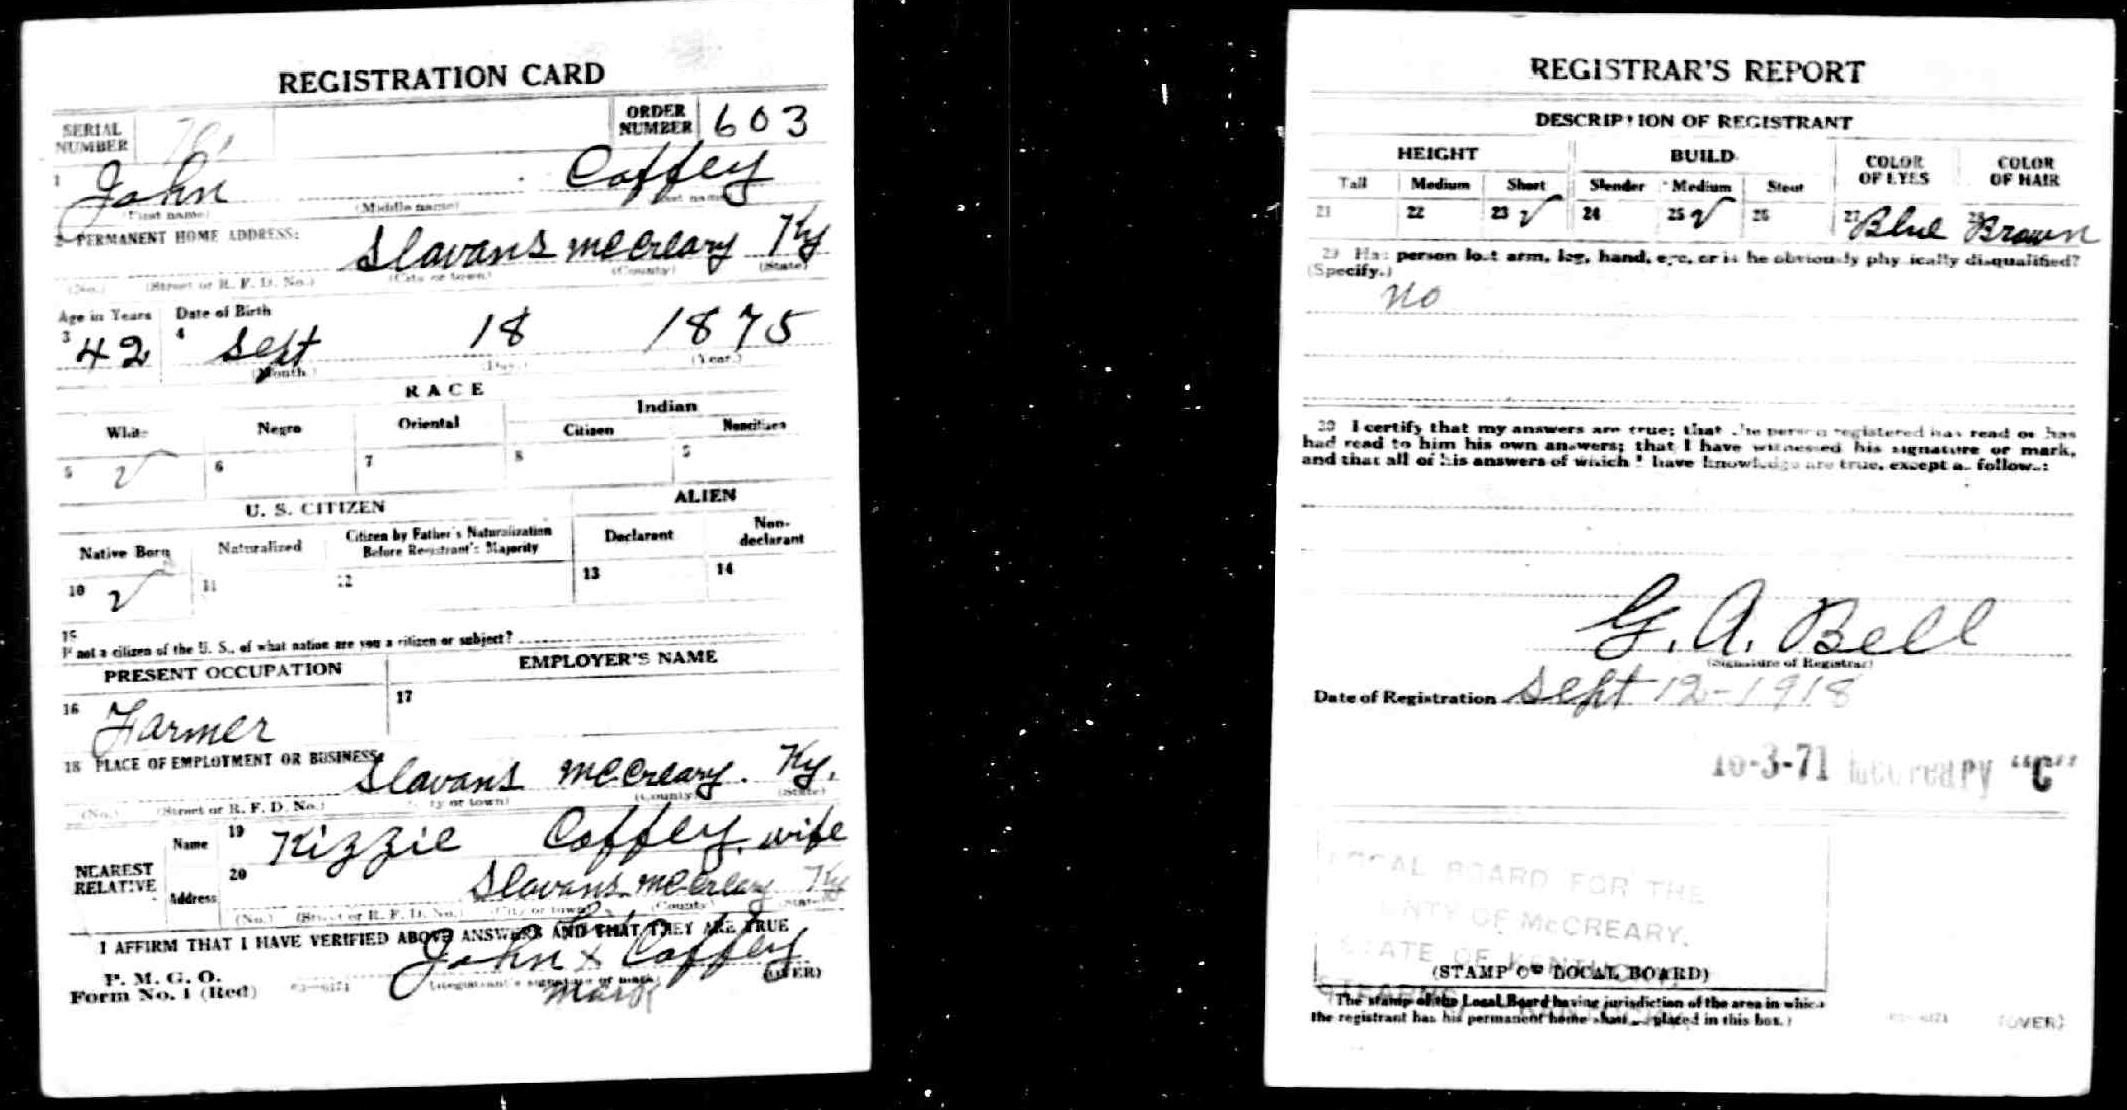 REGISTRATION CARD
SERIAL NUMBER
ORDER NUMBER 603
1 John Coffey
(First name) (Middle name) (Last name)
2 PERMANENT HOME ADDRESS:
Slavans McCreary Ky
(No.) (Street or R. F. D. No.) (City or town) (County) (State)
Age in Years Date of Birth
3 42 4 Sept 18 1875
(Month.) (Day.) (Year.)
RACE
White Negro Oriental Indian
Citizen Noncitizen
5 ✓ 6 7 8 9
U. S. CITIZEN ALIEN
Native Born Naturalized Citizen by Father's Naturalization Before Registrant's Majority Declarant Non-declarant
10 ✓ 11 12 13 14
15
If not a citizen of the U. S., of what nation are you a citizen or subject?
PRESENT OCCUPATION EMPLOYER'S NAME
16 Farmer 17
18 PLACE OF EMPLOYMENT OR BUSINESS:
Slavans McCreary. Ky.
(No.) (Street or R. F. D. No.) (City or town) (County) (State)
NEAREST RELATIVE
Name 19 Kizzie Coffey, wife
Address 20 Slavans McCreary Ky
(No.) (Street or R. F. D. No.) (City or town) (County) (State)
I AFFIRM THAT I HAVE VERIFIED ABOVE ANSWERS AND THAT THEY ARE TRUE
P. M. G. O.
Form No. 1 (Red)
John x Coffey
his
(Registrant's signature or mark) (OVER)
mark
REGISTRAR'S REPORT
DESCRIPTION OF REGISTRANT
HEIGHT BUILD COLOR OF EYES COLOR OF HAIR
Tall Medium Short Slender Medium Stout
21 22 23 ✓ 24 25 ✓ 26 27 Blue 28 Brown
29 Has person lost arm, leg, hand, eye, or is he obviously physically disqualified?
(Specify.)
No
30 I certify that my answers are true; that the person registered has read or has
had read to him his own answers; that I have witnessed his signature or mark,
and that all of his answers of which I have knowledge are true, except as follows:
G. A. Bell
(Signature of Registrar)
Date of Registration Sept 12-1918
16-3-71 McCreary "C"
LOCAL BOARD FOR THE
COUNTY OF McCREARY.
STATE OF KENTUCKY
STEARNS, KENTUCKY
(STAMP OF LOCAL BOARD)
(The stamp of the Local Board having jurisdiction of the area in which
the registrant has his permanent home shall be placed in this box.)
(OVER)